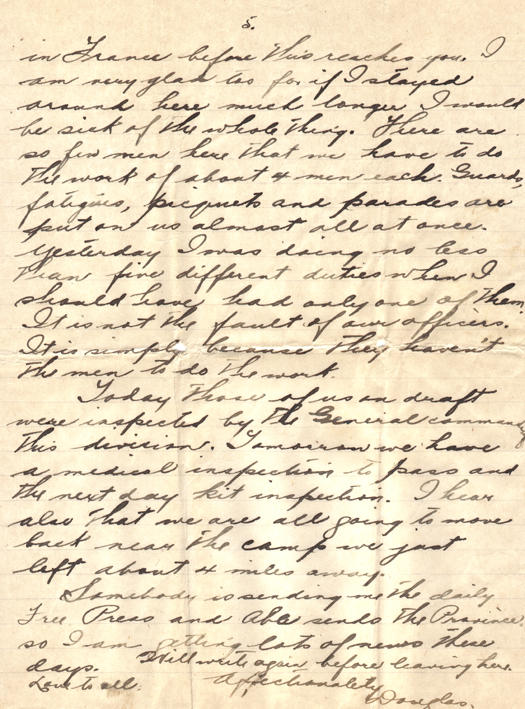 5.
in France before this reaches you. I
am very glad too for if I stayed
around here much longer I would
be sick of the whole thing. There are
so few men here that we have to do
the work of about 4 men each. Guards,
fatigues, picquets and parades are
put on us almost all at once.
Yesterday I was doing no less
than five different duties when I
should have had only one of them.
It is not the fault of our officers.
It is simply because they haven't
the men to do the work.
Today those of us on draft
were inspected by the General commandg
this division. Tomorrow we have
a medical inspection to pass and
the next day kit inspection. I hear
also that we are all going to move
back near the camp we just
left about 4 miles away.
Somebody is sending me the daily
Free Press and Abb sends the Province
so I am getting lots of news these
days. I'll write again before leaving here.
Love to all. Affectionately
Douglas.